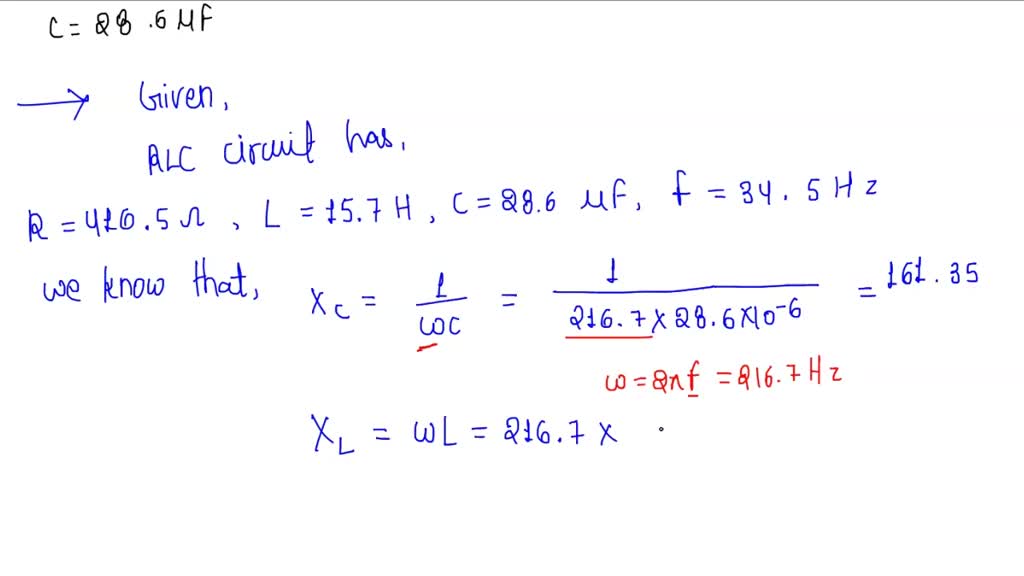 C = 28.6 μF
→ Given,
RLC circuit has,
R = 410.5 Ω, L = 15.7 H, C = 28.6 μF, f = 34.5 Hz
we know that, X_C = 1/ωC = 1/(216.7 × 28.6 × 10^-6) = 161.35
ω = 2πf = 216.7 Hz
X_L = ωL = 216.7 ×